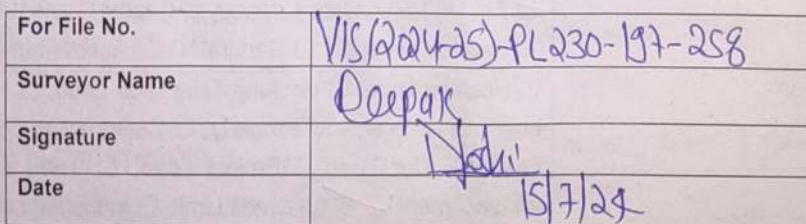 For File No. VIS(2024-25)-PL230-197-258
Surveyor Name Deepak
Signature Joshi
Date 15/7/24